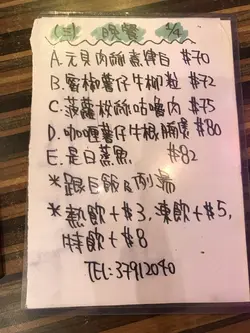 (三) 晚餐 2/4
A. 元貝肉酥煮津白 $70
B. 蜜椒薯仔牛柳粒 $72
C. 菠蘿秋酥咕嚕肉 $75
D. 咖喱薯仔牛根腩煲 $80
E. 是日蒸魚 $82
*跟白飯及例湯
*熱飲+$3, 凍飲+$5,
特飲+$8
TEL: 37912040